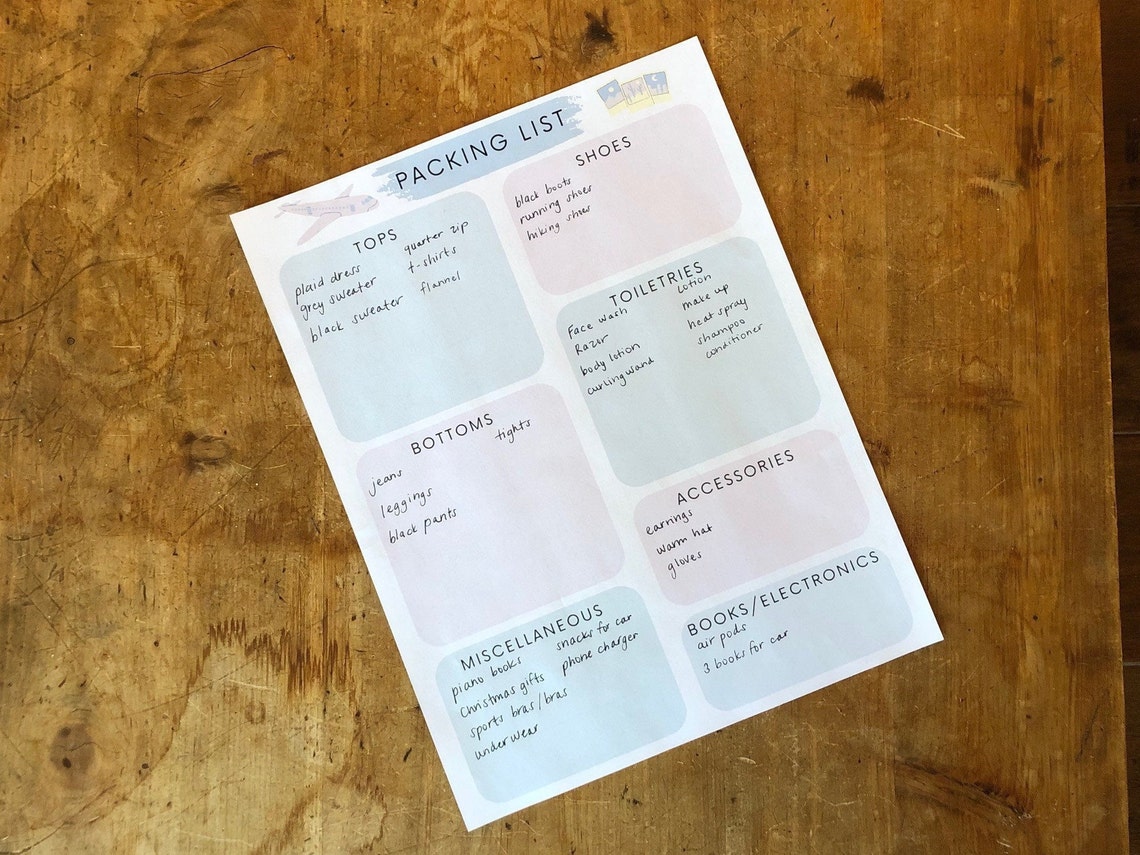 PACKING LIST
TOPS
plaid dress
grey sweater
black sweater
quarter zip
t-shirts
flannel
SHOES
black boots
running shoes
hiking shoes
TOILETRIES
Face wash
Razor
body lotion
curling wand
lotion
make up
heat spray
shampoo
conditioner
BOTTOMS
jeans
leggings
black pants
tights
ACCESSORIES
earrings
warm hat
gloves
MISCELLANEOUS
piano books
Christmas gifts
sports bras/bras
underwear
snacks for car
phone charger
BOOKS/ELECTRONICS
air pods
3 books for car